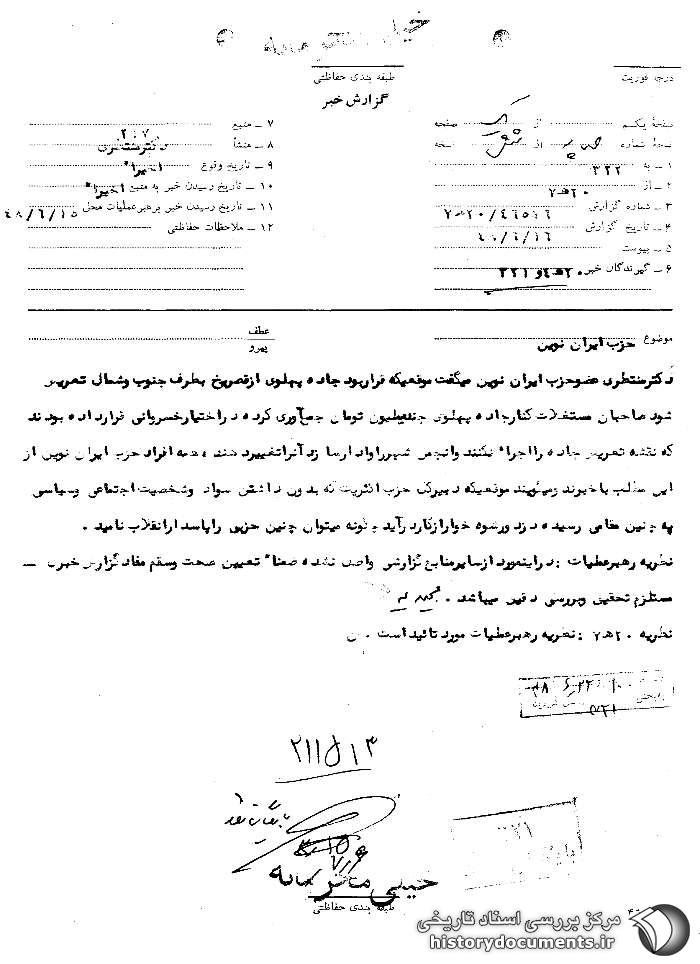 خیلی محرمانه
درجه فوریت
طبقه بندی حفاظتی
گزارش خبر
صفحهٔ یکم از صفحه
نسخهٔ شماره از نسخه
۱ ـ به ۳۲۲
۲ ـ از ۲۰ هـ ۷
۳ ـ شماره گزارش ۷ هـ ۲۰/۴۶۵۱۶
۴ ـ تاریخ گزارش ۴۸/۶/۱۶
۵ ـ پیوست
۶ ـ گیرندگان خبر ۲۰ هـ ۴ و ۳۲۱
۷ ـ منبع ۲۰۷
۸ ـ منشأ دکتر منتظری
۹ ـ تاریخ وقوع اخیراً
۱۰ ـ تاریخ رسیدن خبر به منبع اخیراً
۱۱ ـ تاریخ رسیدن خبر برهبر عملیات محل ۴۸/۶/۱۵
۱۲ ـ ملاحظات حفاظتی
موضوع حزب ایران نوین
عطف
پیرو
دکتر منتظری عضو حزب ایران نوین میگفت موقعیکه قرار بود جاده پهلوی از قصر یخ بطرف جنوب و شمالی تعریض
شود صاحبان مستغلات کنار جاده پهلوی چند ملیون تومان جمع‌آوری کرده در اختیار خسروانی قرار داده بودند
که نقشه تعریض جاده را اجراء نکنند و انجمن شهر را وادار سازد آنرا تغییر دهند همه افراد حزب ایران نوین از
این مطلب باخبرند و میگویند موقعیکه دبیر یک حزب اکثریت که بدون داشتن سواد و شخصیت اجتماعی و سیاسی
به چنین مقامی رسیده دزد و رشوه خوار از کار درآید چگونه میتوان چنین حزبی را پاسدار انقلاب نامید .
نظریه رهبر عملیات : در اینمورد از سایر منابع گزارشی واصل نشده ضمناً تعیین صحت و سقم مفاد گزارش خبر
مستلزم تحقیق و بررسی دقیق میباشد .
نظریه ۲۰ هـ ۷ : نظریه رهبر عملیات مورد تائید است .
۴۸/۶/۲۲
۳۲۱
بایگانی شود
خیلی محرمانه
طبقه بندی حفاظتی
مرکز بررسی اسناد تاریخی
historydocuments.ir